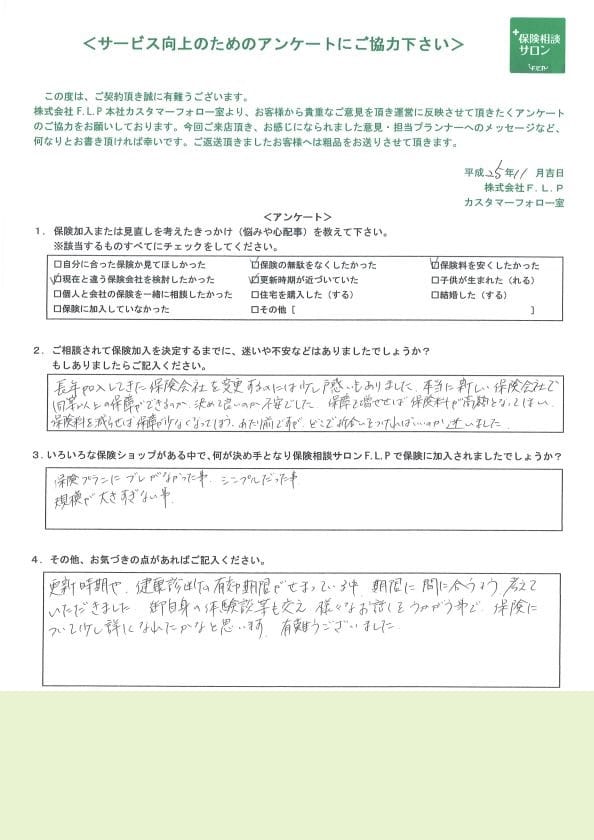 ＜サービス向上のためのアンケートにご協力下さい＞
+保険相談
サロン
F.L.P
この度は、ご契約頂き誠に有難うございます。
株式会社F.L.P本社カスタマーフォロー室より、お客様から貴重なご意見を頂き運営に反映させて頂きたくアンケート
のご協力をお願いしております。今回ご来店頂き、お感じになられました意見・担当プランナーへのメッセージなど、
何なりとお書き頂ければ幸いです。ご返送頂きましたお客様へは粗品をお送りさせて頂きます。
平成25年11月吉日
株式会社F.L.P
カスタマーフォロー室
＜アンケート＞
1．保険加入または見直しを考えたきっかけ（悩みや心配事）を教えて下さい。
※該当するものすべてにチェックをしてください。
□自分に合った保険か見てほしかった ☑保険の無駄をなくしたかった ☑保険料を安くしたかった
☑現在と違う保険会社を検討したかった ☑更新時期が近づいていた □子供が生まれた（れる）
□個人と会社の保険を一緒に相談したかった □住宅を購入した（する） □結婚した（する）
□保険に加入していなかった □その他［ ］
2．ご相談されて保険加入を決定するまでに、迷いや不安などはありましたでしょうか？
もしありましたらご記入ください。
長年加入してきた保険会社を変更するのには少し戸惑いもありました。本当に新しい保険会社で
同等以上の保障ができるのか、決めて良いのか不安でした。保障を増せば保険料が高額となってしまい、
保険料を減らせば保障が少なくなってしまう、あたり前ですが、どこで折合いをつければいいのか迷いました。
3．いろいろな保険ショップがある中で、何が決め手となり保険相談サロンF.L.Pで保険に加入されましたでしょうか？
保険プランにブレがなかった事、シンプルだった事
規模が大きすぎない事、
4．その他、お気づきの点があればご記入ください。
更新時期や、健康診断の有効期限がせまっている中、期間に間に合うよう考えて
いただきました。御自身の体験談等も交え、様々なお話しをうかがう事で、保険に
ついて少し詳しくなれたかなと思います。有難うございました。